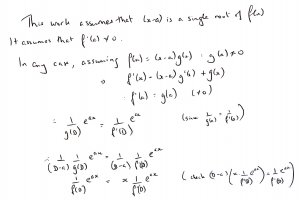 This work assumes that (x-a) is a single root of f(x)
It assumes that f'(a) ≠ 0.
In any case, assuming f(x) = (x-a)g(x) : g(a) ≠ 0
f'(x) = (x-a)g'(x) + g(x)
f'(a) = g(a) (≠0)
∴ 1/g(D) e^{ax} = 1/f'(D) e^{ax} (since 1/g(a) = 1/f'(a))
∴ 1/(D-a) 1/g(D) e^{ax} = 1/(D-a) 1/f'(D) e^{ax}
1/f(D) e^{ax} = x 1/f'(D) e^{ax} (check (D-a)(x 1/f'(D) e^{ax}) = 1/f'(D) e^{ax})